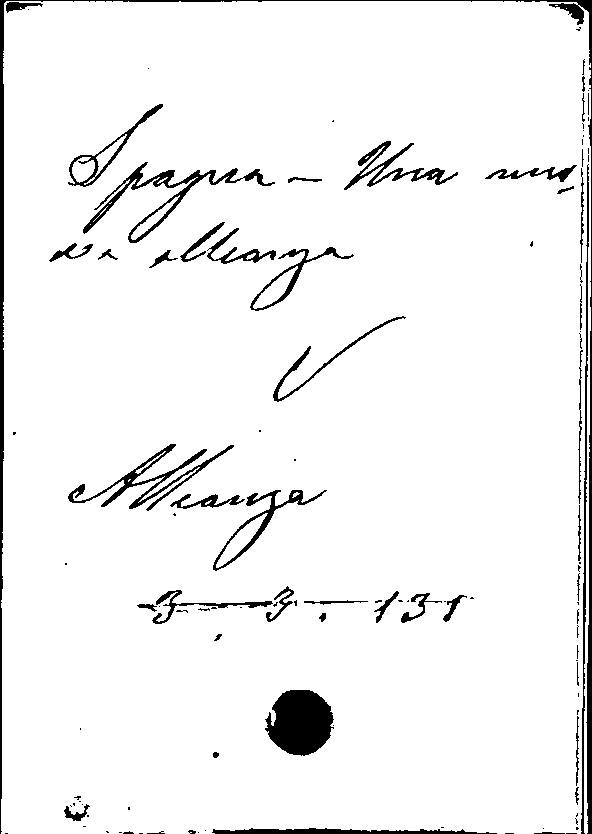 Spagna – Una nuo-
va alleanza
V
Alleanza
3 3. 131